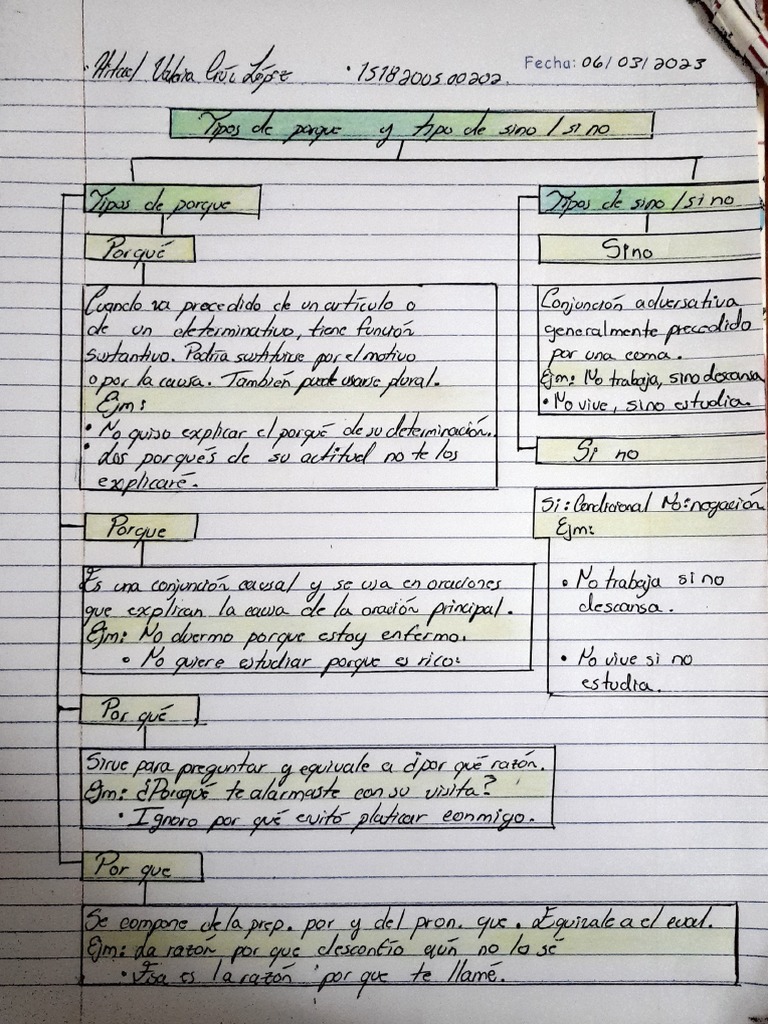 Valeria Cruz López • 151820050202. Fecha: 06/03/2023
Tipos de porque y tipo de sino / si no
Tipos de porque
Porqué
Cuando va precedido de un artículo o
de un determinativo, tiene función
sustantivo. Podría sustituirse por el motivo
o por la causa. También puede usarse plural.
Ejm:
• No quiso explicar el porqué de su determinación.
• Los porqués de su actitud no te los
explicaré.
Porque
Es una conjunción causal y se usa en oraciones
que explican la causa de la oración principal.
Ejm: No duermo porque estoy enfermo.
• No quiere estudiar porque es rico.
Por qué
Sirve para preguntar y equivale a ¿por qué razón.
Ejm: ¿Porqué te alarmaste con su visita?
• Ignoro por qué evitó platicar conmigo.
Por que
Se compone de la prep. por y del pron. que. Equivale a el cual.
Ejm: La razón por que desconfío aún no lo sé
• Esa es la razón por que te llamé.
Tipos de sino / si no
Sino
Conjunción adversativa
generalmente precedido
por una coma.
Ejm: No trabaja, sino descansa
• No vive, sino estudia.
Si no
Si: Condicional No: negación
Ejm:
• No trabaja si no
descansa.
• No vive si no
estudia.